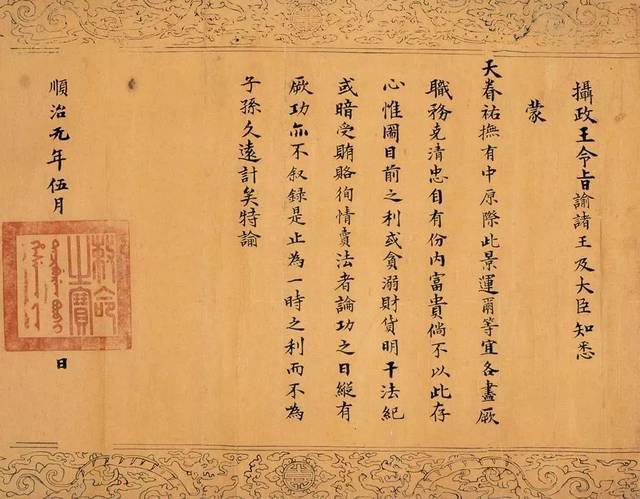 攝政王令旨諭諸王及大臣知悉
蒙
天眷祐撫有中原際此景運爾等宜各盡厥
職務克清忠自有份內富貴倘不以此存
心惟圖目前之利或貪溺財貨明干法紀
或暗受賄賂徇情賣法者論功之日縱有
厥功亦不叙録是止為一時之利而不為
子孫久遠計矣特諭
順治元年伍月
日
敕命之寶